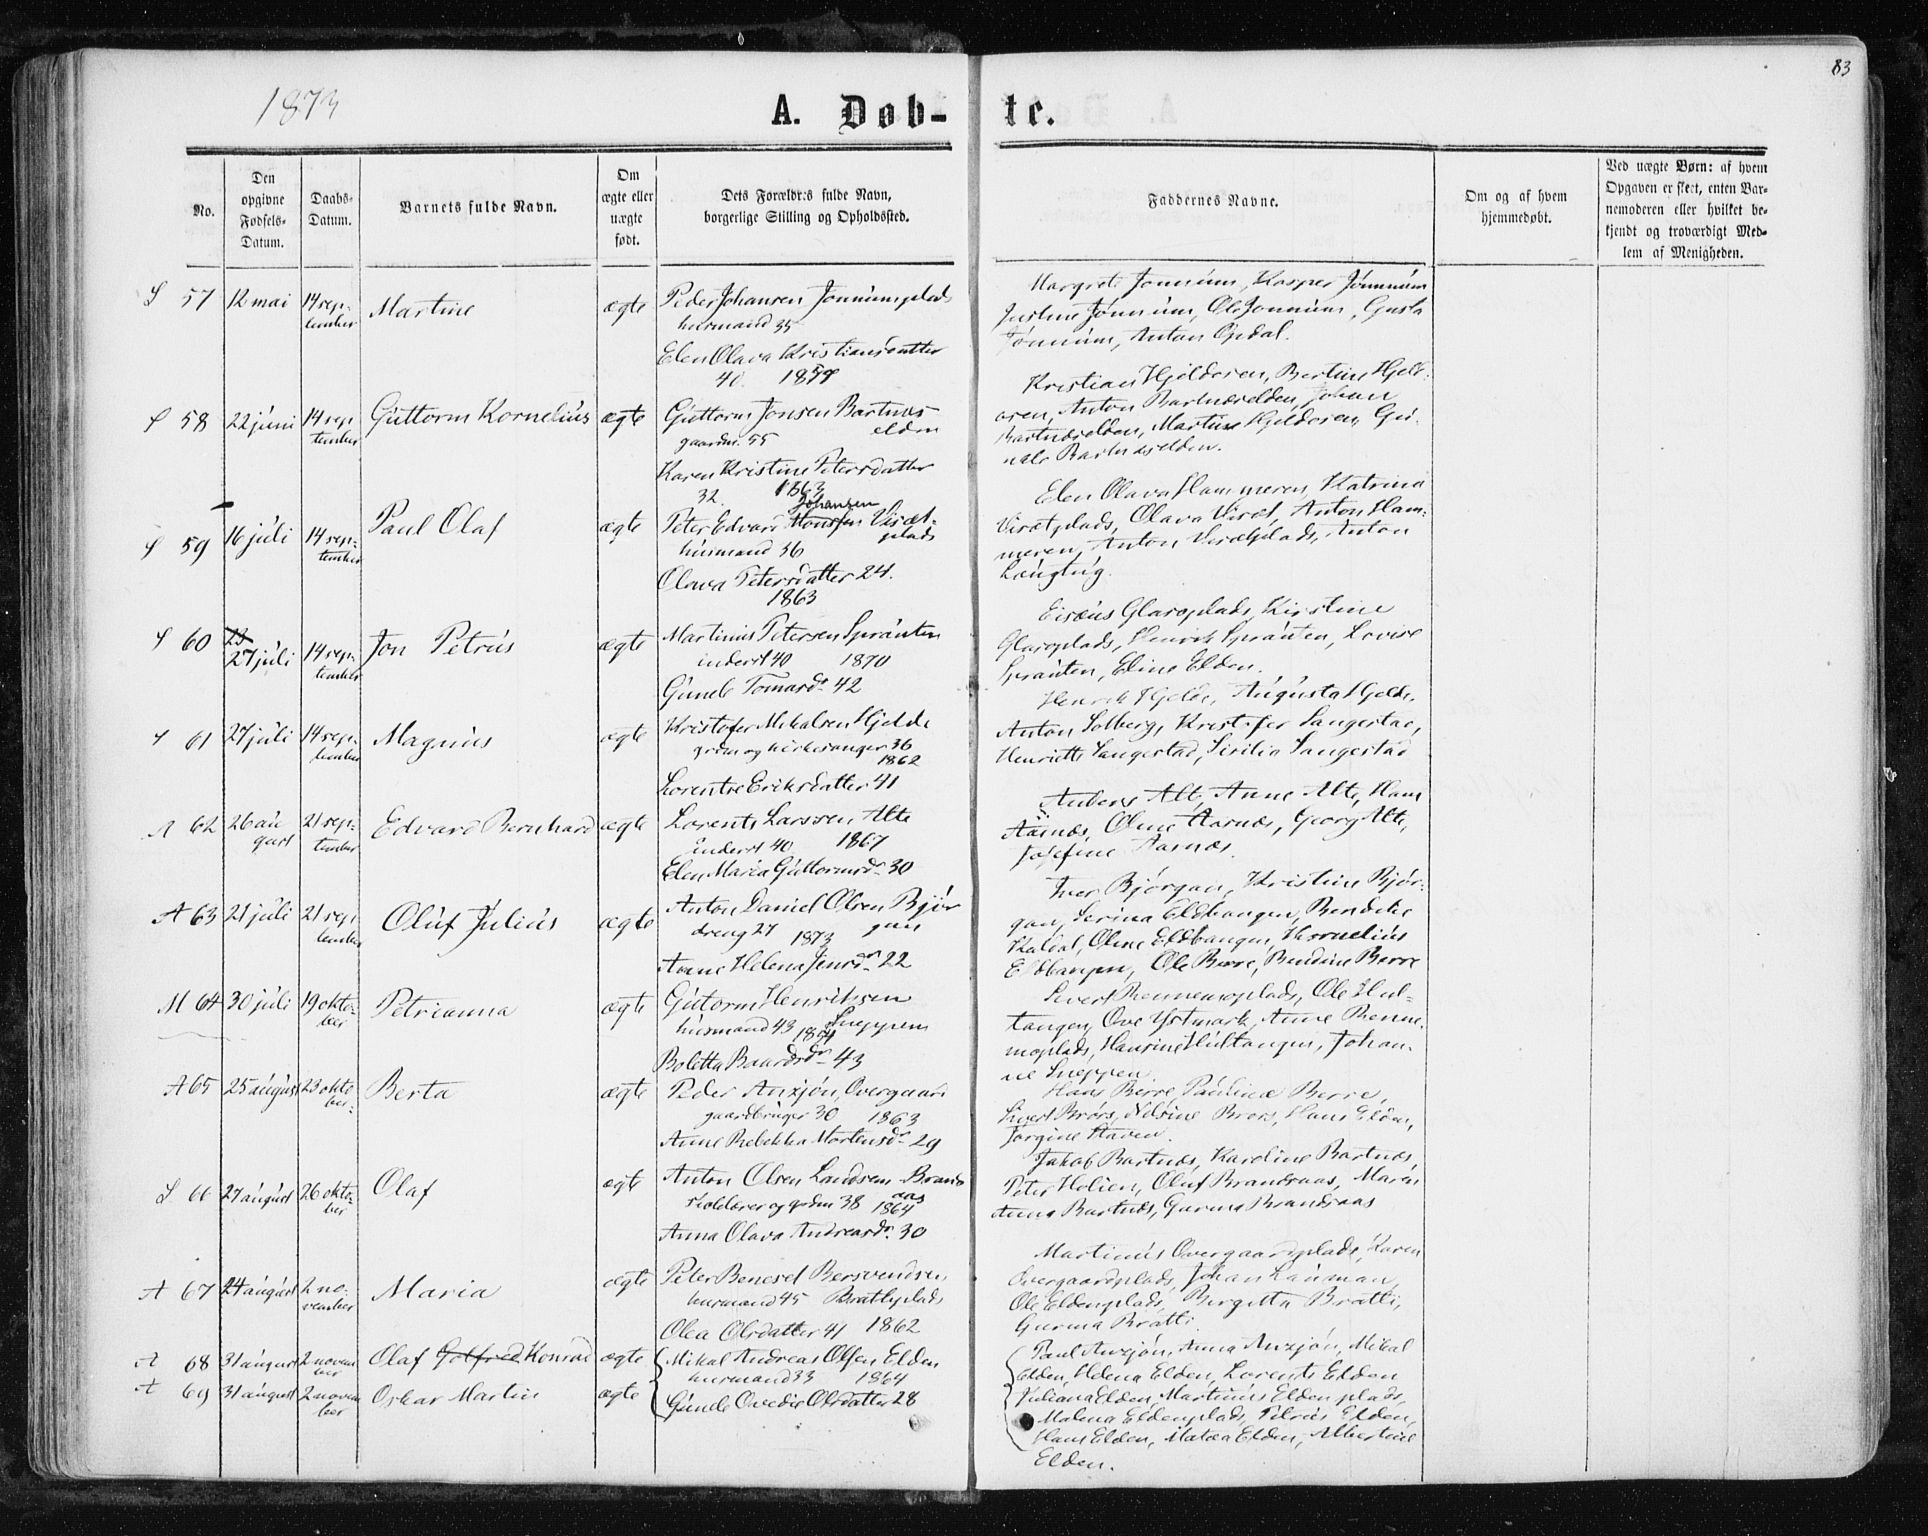 83
1873
A. Døb-
te.
No.
Den
opgivne
Fødsels-
Datum.
Daabs-
Datum.
Barnets fulde Navn.
Om
ægte eller
uægte
født.
Dets Forældres fulde Navn,
borgerlige Stilling og Opholdssted.
Faddernes Navne.
Om og af hvem
hjemmedøbt.
Ved uægte Børn: af hvem
Opgaven er skeet, enten Bar-
nemoderen eller hvilket be-
kjendt og troværdigt Med-
lem af Menigheden.
S 57 12 mai 14 sep-
tember
Martine
ægte
Peder Johansen Jønnumsplads
husmand 35
Elen Olava Kristiansdatter
40
Margrete Jønnum, Kasper Jønnum
Justine Jønnum, Ole Jønnum, Gusta
Jønnum, Anton Opdal.
S 58 22 juni 14 sep
tember
Guttorm Kornelius
ægte
Guttorm Jonsen Bartnes-
elden
gaardm. 55
Karen Kristine Petersdatter
32 1863
Kristian Hjeldesen, Bertine Hjeld-
esen, Anton Bartneselden, Johan
Bartneselden, Martine Hjeldesen, Gu-
nele Bartneselden.
S 59 16 juli 14 sep-
tember
Paul Olaf
ægte
Johansen
Peter Edvard Monsen Viræt-
plads
husmand 36
Olava Petersdatter 24.
1863
Elen Olava Hammeren, Katrina
Virætplads, Olava Viræt, Anton Ham-
meren, Anton Virætplads, Anton
S 60 23
27 juli 14 sep-
tember
Jon Petrus
ægte
Martinus Petersen Sprauten
inderst 40 1870
Gunele Tomasdr. 42
Glasoplads, Kirstine
Glasoplads, Henrik Sprauten, Lovise
Sprauten, Eline Elden.
S 61 27 juli 14 sep-
tember
Magnus
ægte
Kristofer Mikalsen Hjelde
grdm og kirkesanger 36
1862
Lorentse Eriksdatter 41
Henrik Hjelde, Augusta Hjelde,
Anton Solberg, Kristofer Langestad,
Henriette Langestad, Sirilia Langestad
A 62 26 au
gust 21 sep-
tember
Edvard Bernhard
ægte
Lorents Larssen Alte
inderst 40 1867
Elen Maria Guttormsdr 30
Anders Alte, Anne Alte, Hans
Aasnæs, Oline Aasnæs, Georg Alte,
Josefine Aasnæs.
A 63 21 juli 21 sep
tember
Oluf Julius
ægte
Anton Daniel Olsen Bjør
gan
dreng 27 1873
Anne Helena Jensdr 22
Iver Bjørgan, Kristine Bjør-
gan, Serina Eldbangen, Bendike
Kaldal, Oline Eldbangen, Kornelius
Eldbangen, Ole Berre, Bendine Berre
M 64 30 juli 19 okto-
ber
Petrianna
ægte
Gutorm Henriksen
Sneppen
husmand 43
Boletta Baardsdr 43
Sivert Rennemoplads, Ole Hul-
tangen, Ove Ystmark, Anne Renne-
moplads, Hansine Hultangen, Johan-
ne Sneppen
A 65 25 august 23 okto
ber-
Berta
ægte
Peder Anzjøn, Overgaard
gaardbruger 30 1863
Anne Rebekka Mortensdr 29
Hans Berre, Pauline Berre,
Sivert Brørs, Brørs, Hans Elden,
Jørgine Staven.
S 66 27 august 26 okto-
ber
Olaf
ægte
Anton Olsen Landsem Brands
aas
skolelærer og grdm 38 1864
Anna Olava Andreasdr. 30
Jakob Bartnæs, Karoline Bartnæs,
Peter Holien, Oluf Brandsaas, Maren
Anna Bartnæs, Gurina Brandsaas
A 67 24 august 2 no-
vember
Maria
ægte
Peter Benesel Bersvendsen
husmand 45 Bratliplads
Olea Olsdatter 41 1862
Martinus Overgaardplads, Karen
Overgaardplads, Johan Lauman,
Ole Eldenplads, Bergitta Bratli,
Gurina Bratli.
A 68 31 august 2 novem
ber
Olaf Gotfred Konrad
ægte
Mikal Andreas Olsen Elden
husmand 33 1864
A 69 31 august 2 novem
ber
Oskar Martin
ægte
Gunele Ovedie Olsdatter 28
Paul Anzjøn, Anna Anzjøn, Mikal
Elden, Helena Elden, Lorents Elden
Juliana Elden, Martinus Eldenplads,
Malena Eldenplads, Petrus Elden,
Hans Elden, Matea Elden, Albertine
Elden.